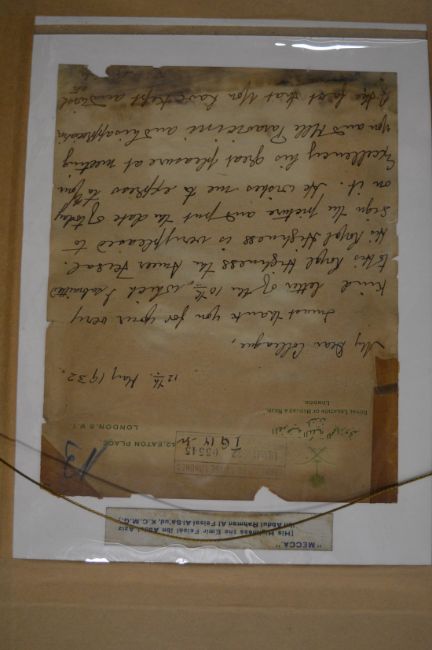 "MECCA"
(His Highness the Emir Faisal Ibn Abdul Aziz
Ibn Abdul Rahman Al Faisal Al Sa'ud, K.C.M.G.)
EATON PLACE,
LONDON. S.W.1.
ROYAL LEGATION OF HEDJAZ & NEJD,
LONDON.
12th. May 1932.
My Dear Colleague,
I must thank you for your very
kind letter of the 10th, which I submitted
to His Royal Highness the Ameer Feisal.
His Royal Highness is very pleased to
sign the picture and put the date of today
on it. He wishes me to express to your
Excellency his great pleasure at meeting
you and Mlle Paravicini and his appreciation
of the fact that you have kept an